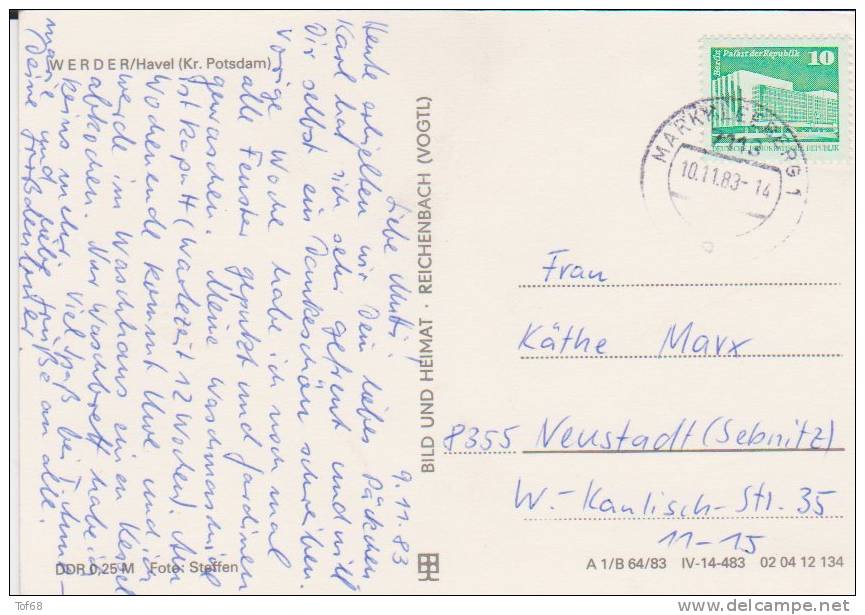 WERDER/Havel (Kr. Potsdam)
9.11.83
Liebe Mutti!
Heute erhielten wir Dein liebes Päckchen
Karl hat sich sehr gefreut und will
Dir selbst ein Dankeschön schreiben.
Vorige Woche habe ich noch mal
alle Fenster geputzt und Gardinen
gewaschen. Meine Waschmaschine
ist kaputt (Wartezeit 12 Wochen). Am
Wochenende kommt Uwe und ich
werde im Waschhaus einen Kessel
abkochen. Nur Waschbrett habe ich
keins mehr. Viel Spaß bei
und liebe Grüße an alle.
Deine
DDR 0,25 M Foto: Steffen
BILD UND HEIMAT · REICHENBACH (VOGTL)
Berlin Palast der Republik 10
DEUTSCHE DEMOKRATISCHE REPUBLIK
MARKKLEEBERG 1
7113
10.11.83-14
Frau
Käthe Marx
8355 Neustadt (Sebnitz)
W.-Kaulisch-Str. 35
11-15
A 1/B 64/83 IV-14-483 02 04 12 134
Tof68